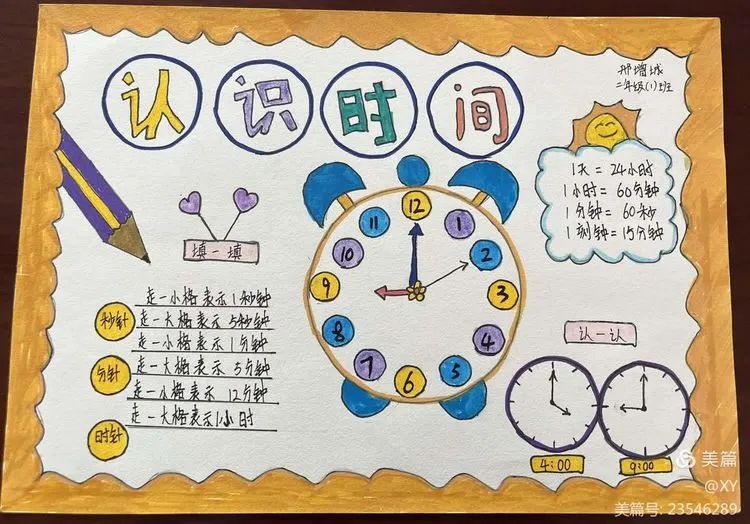 认识时间
邢增城
二年级(1)班
1天=24小时
1小时=60分钟
1分钟=60秒
1刻钟=15分钟
填一填
走一小格表示1秒钟
秒针
走一大格表示5秒钟
走一小格表示1分钟
分针
走一大格表示5分钟
走一小格表示12分钟
走一大格表示1小时
时针
12
11
1
10
2
9
3
8
4
7
5
6
认一认
4:00
9:00
美篇
@XY
美篇号: 23546289